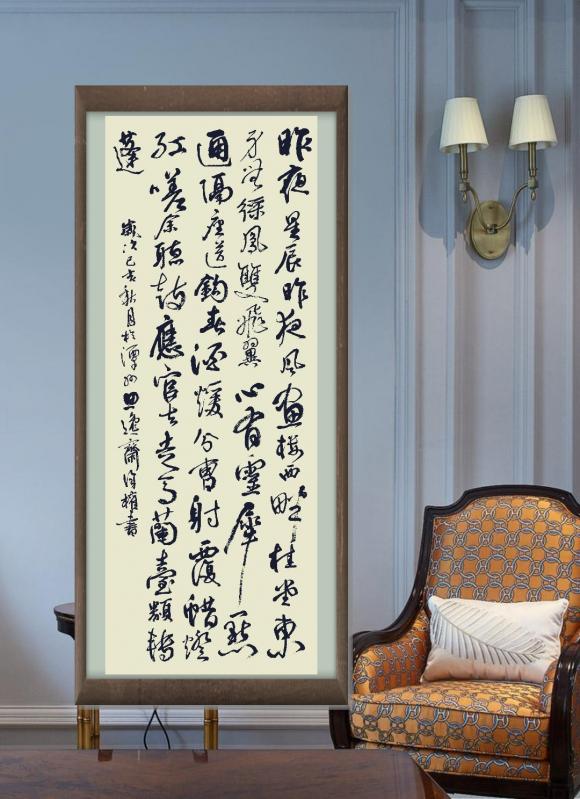 昨夜星辰昨夜风画楼西畔桂堂東
身無綵鳳雙飛翼心有靈犀一點
通隔座送鈎春酒煖分曹射覆蜡燈
紅嗟余聽鼓應官去走马蘭臺類轉
蓬
歲次己亥秋月於潭州逸齋書